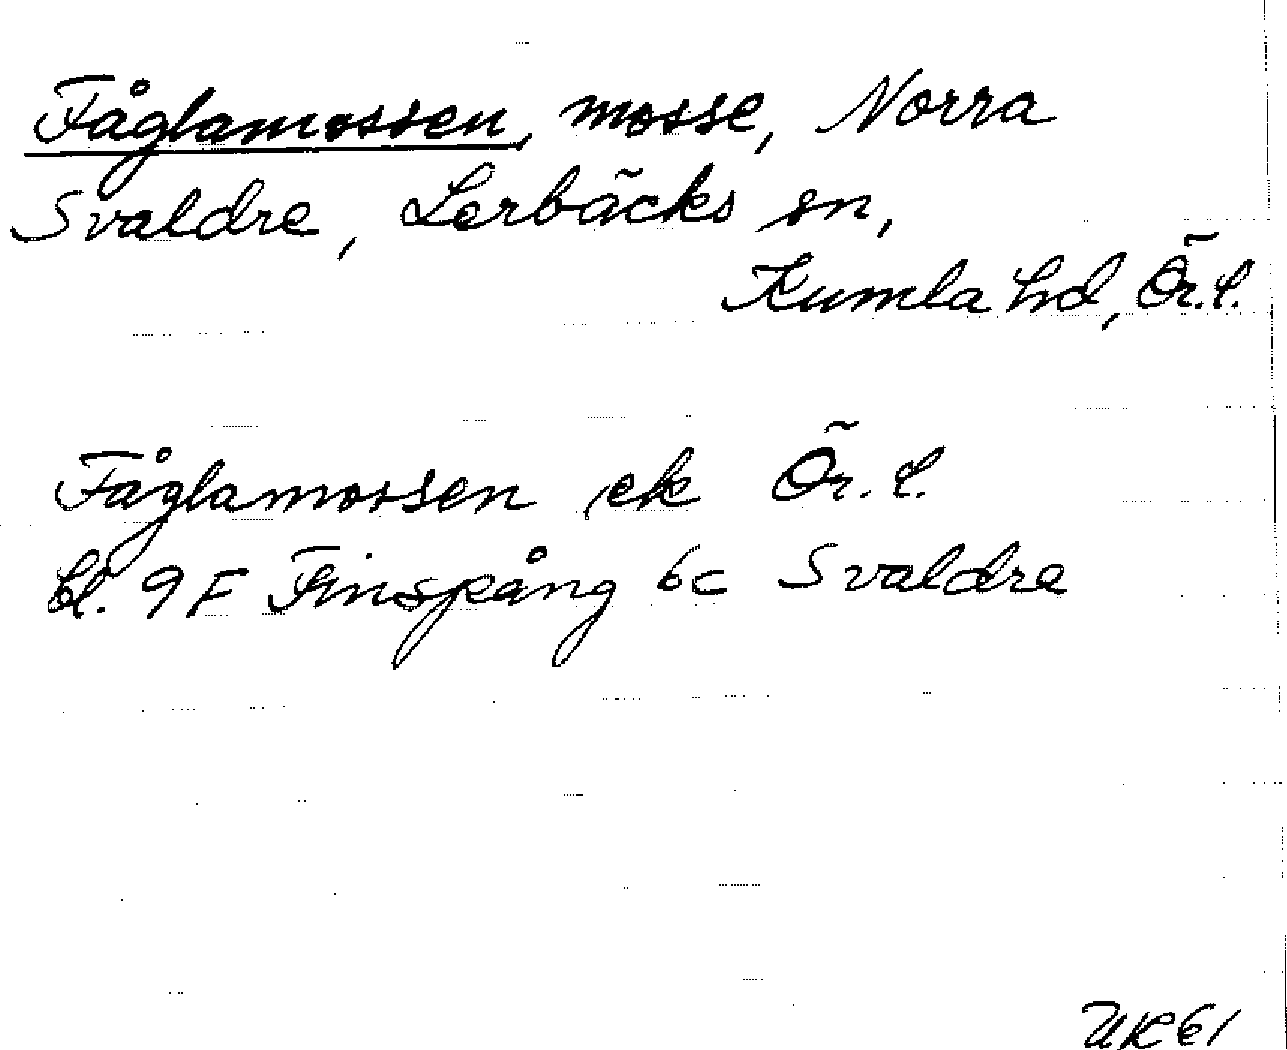 Fåglamossen, mosse, Norra
Svaldre, Lerbäcks sn,
Kumla hd, Ör. l.
Fåglamossen ek Ör. l.
bl. 9F Finspång 6c Svaldre
UK61